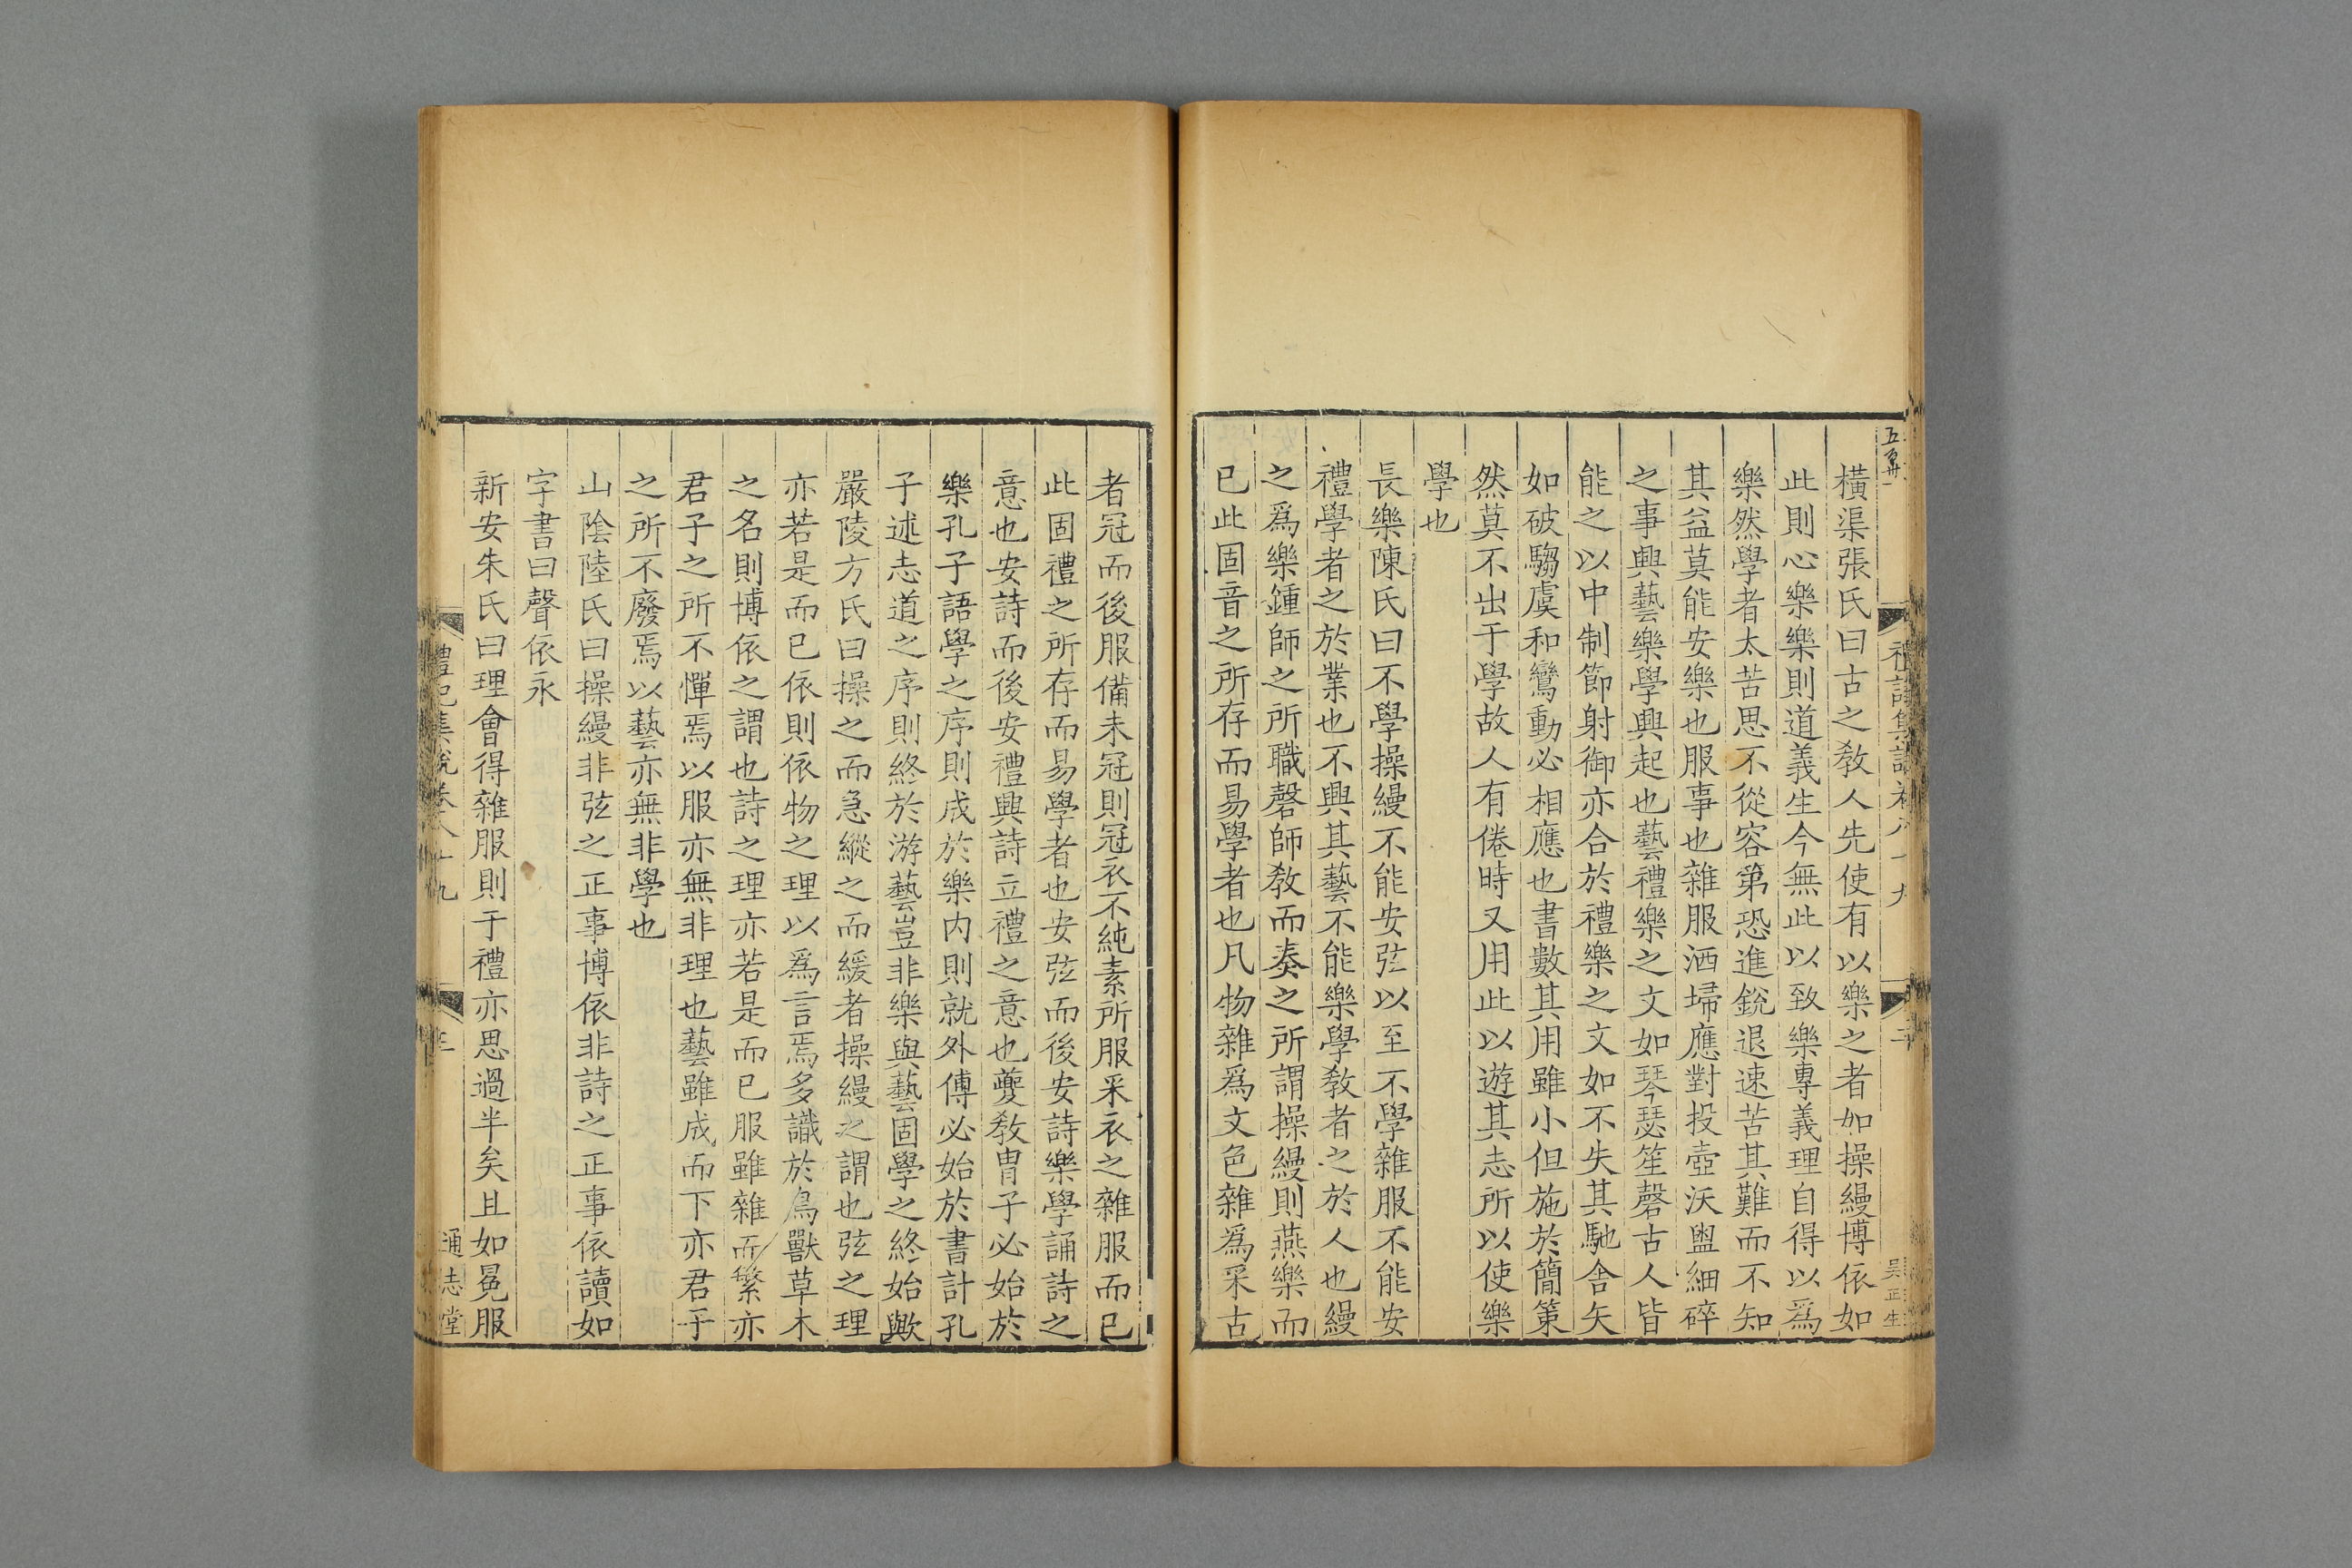 橫渠張氏曰古之敎人先使有以樂之者如操縵博依如
此則心樂樂則道義生今無此以致樂專義理自得以爲
樂然學者太苦思不從容第恐進銳退速苦其難而不知
其益莫能安樂也服事也雜服洒埽應對投壺沃盥細碎
之事興藝樂學興起也藝禮樂之文如琴瑟笙磬古人皆
能之以中制節射御亦合於禮樂之文如不失其馳舍矢
如破騶虞和鸞動必相應也書數其用雖小但施於簡策
然莫不出于學故人有倦時又用此以遊其志所以使樂
學也
長樂陳氏曰不學操縵不能安弦以至不學雜服不能安
禮學者之於業也不興其藝不能樂學敎者之於人也縵
之爲樂鍾師之所職磬師敎而奏之所謂操縵則燕樂而
已此固音之所存而易學者也凡物雜爲文色雜爲采古
者冠而後服備未冠則冠衣不純素所服采衣之雜服而已
此固禮之所存而易學者也安弦而後安詩樂學誦詩之
意也安詩而後安禮興詩立禮之意也夔敎胄子必始於
樂孔子語學之序則成於樂内則就外傅必始於書計孔
子述志道之序則終於游藝豈非樂與藝固學之終始歟
嚴陵方氏曰操之而急縱之而緩者操縵之謂也弦之理
亦若是而已依則依物之理以爲言焉多識於鳥獸草木
之名則博依之謂也詩之理亦若是而已服雖雜而繁亦
君子之所不憚焉以服亦無非理也藝雖成而下亦君子
之所不廢焉以藝亦無非學也
山陰陸氏曰操縵非弦之正事博依非詩之正事依讀如
字書曰聲依永
新安朱氏曰理會得雜服則于禮亦思過半矣且如冕服
禮記集說卷八十九
三
通志堂